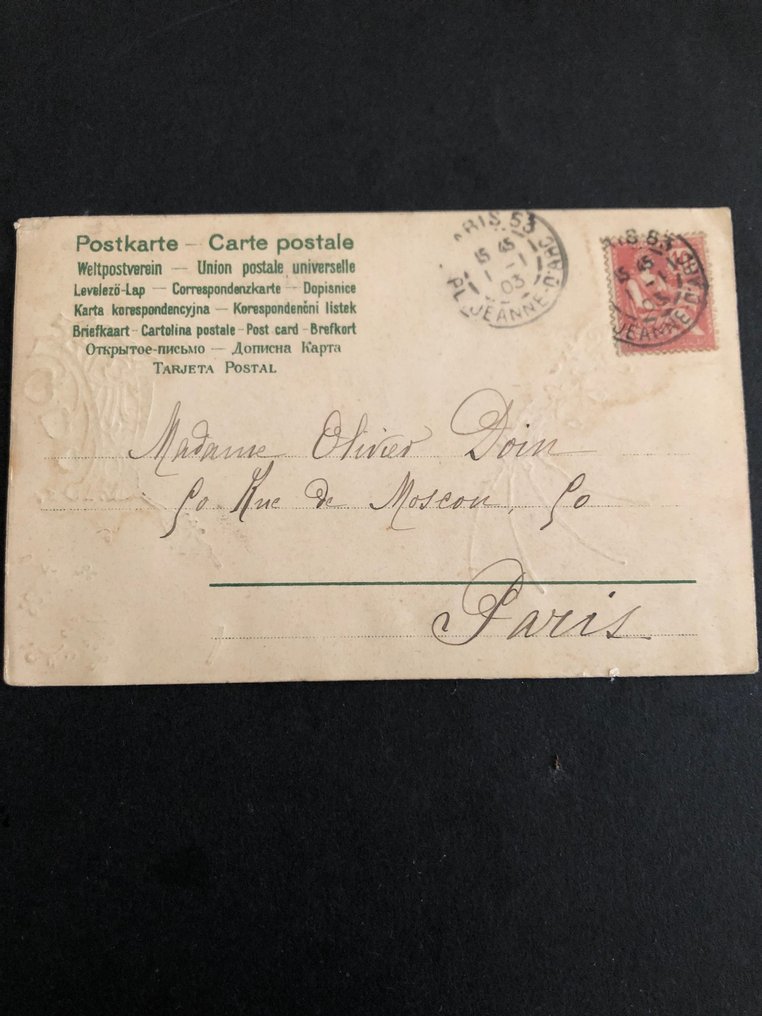 Postkarte – Carte postale
Weltpostverein — Union postale universelle
Levelezö-Lap — Correspondenzkarte — Dopisnice
Karta korespondencyjna — Korespondenčni listek
Briefkaart - Cartolina postale - Post card - Brefkort
Открытое-письмо — Дописна Карта
TARJETA POSTAL
RIS 53
15 45
1 - 1
03
PL. JEANNE-D'ARC
IS 53
15 45
1 - 1
03
JEANNE-D'ARC
Madame Olivier Doin
50 Rue de Moscou, 50
Paris